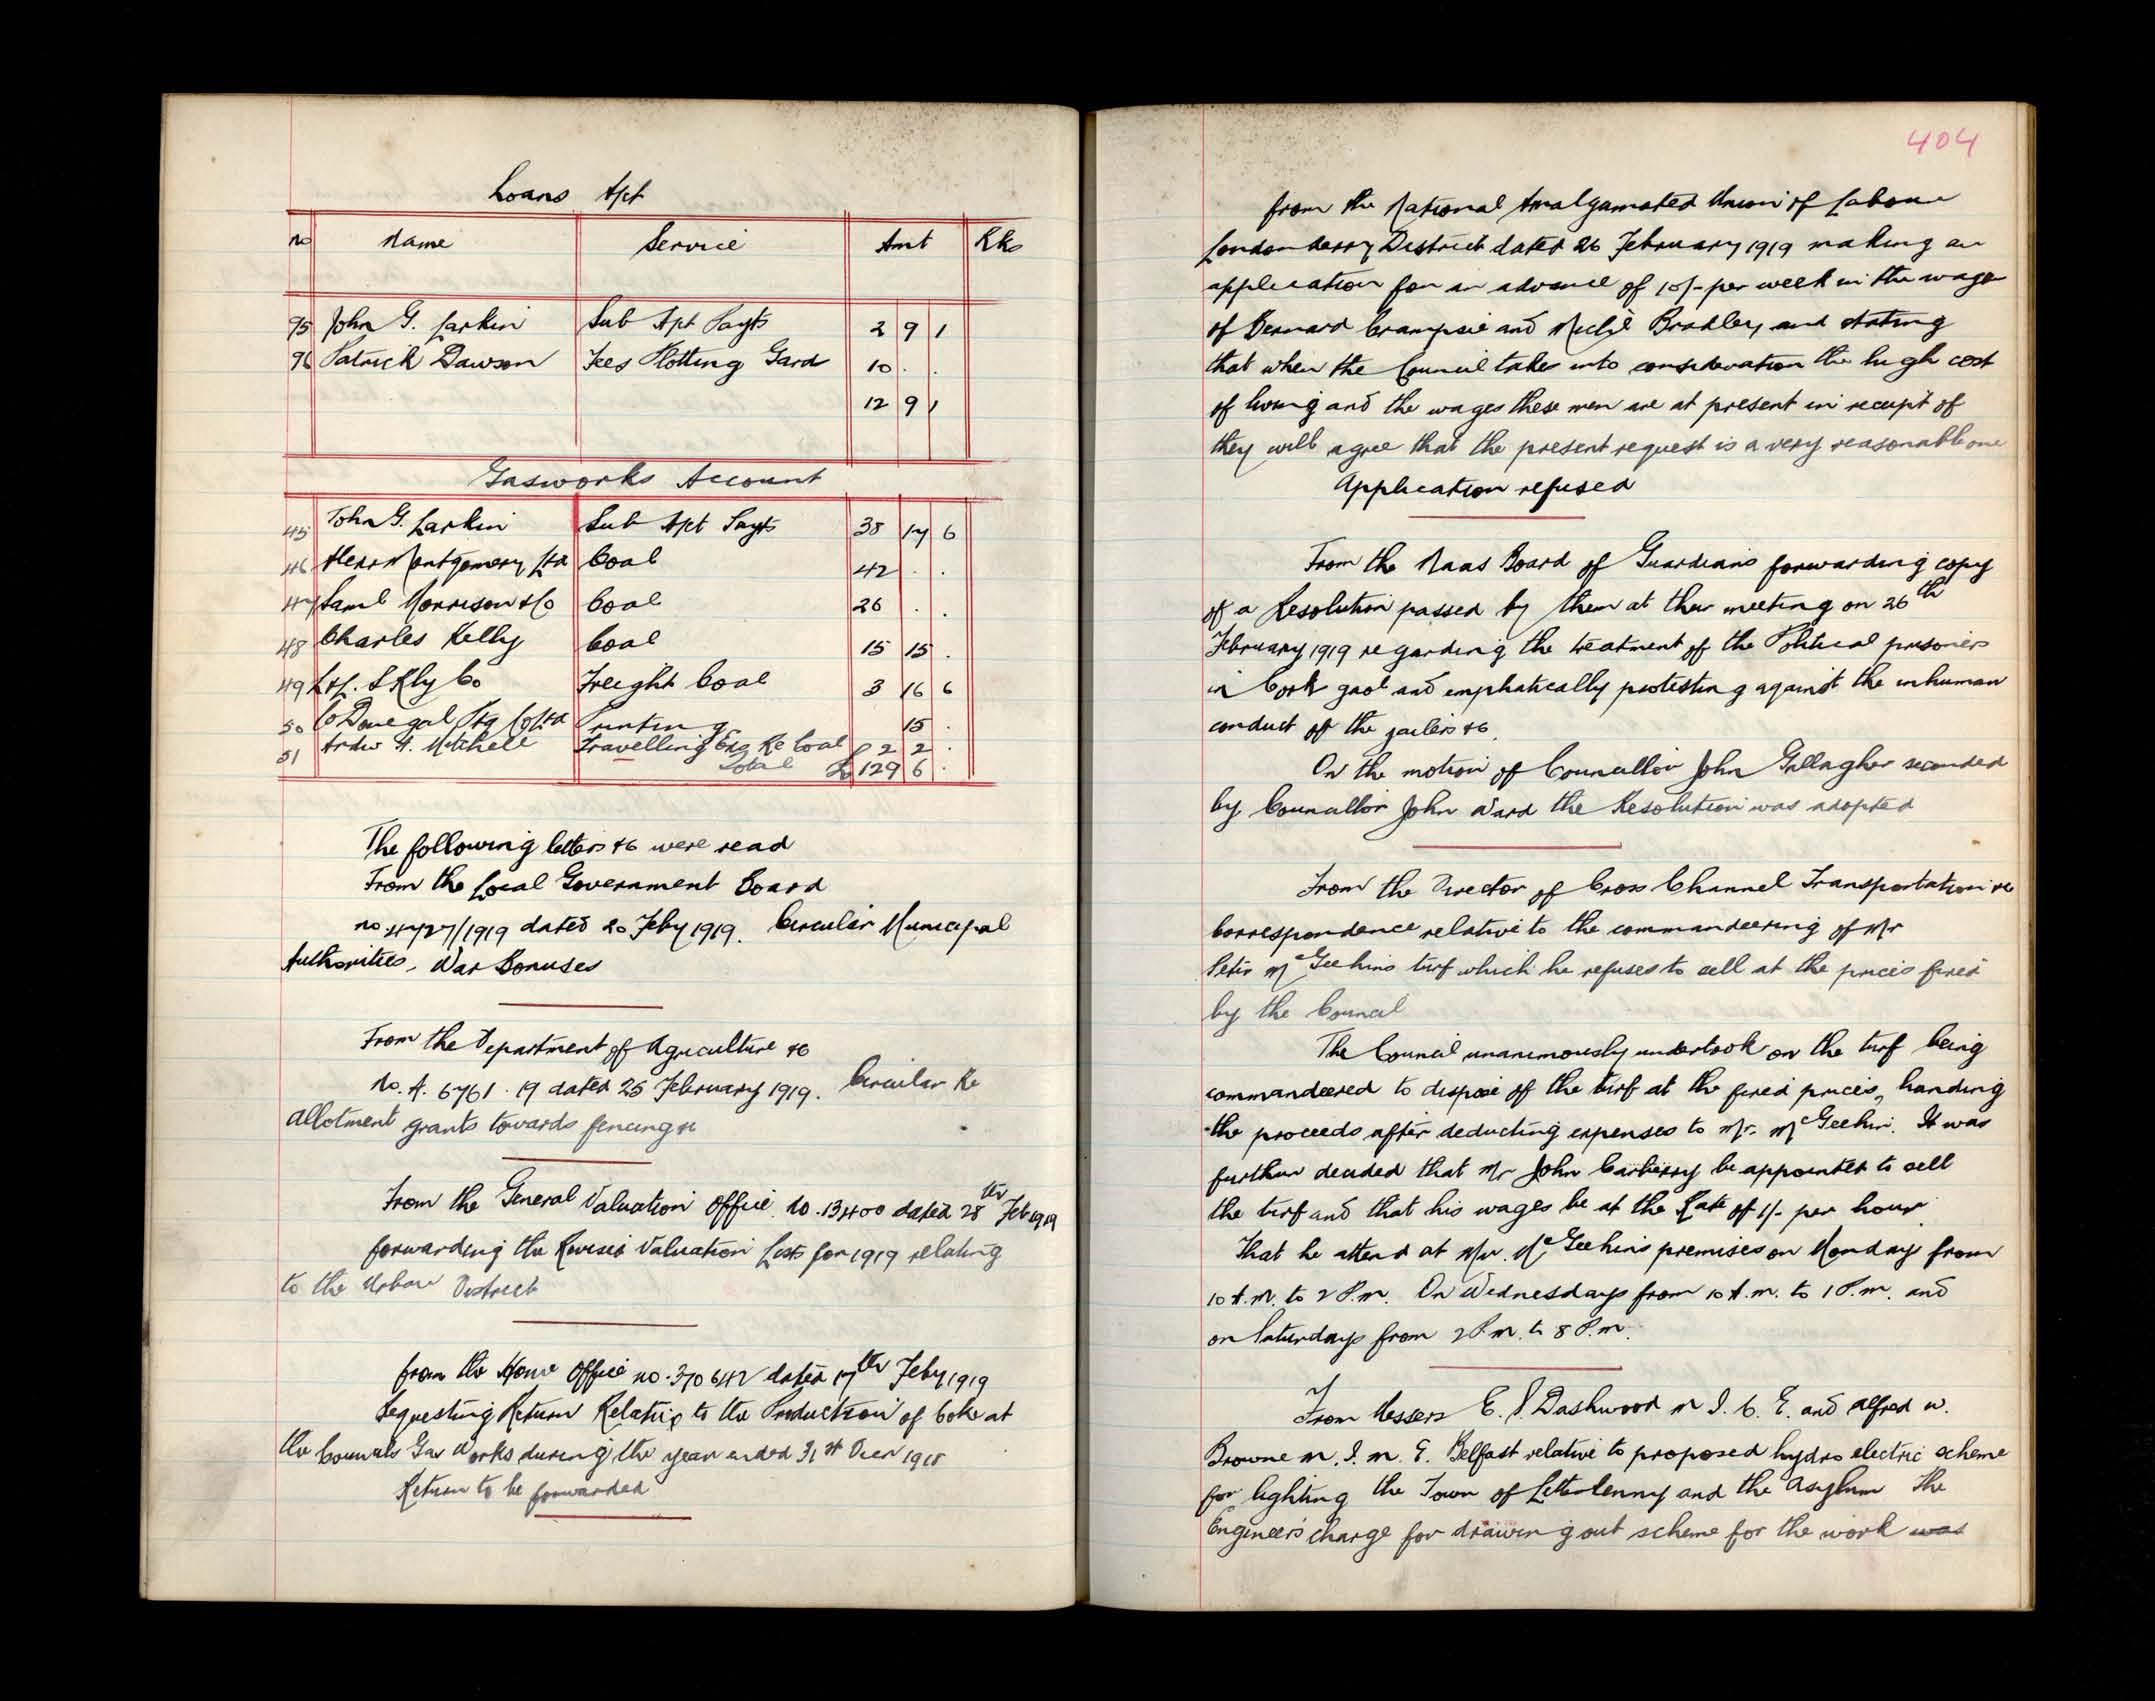 Loans A/ct
no Name Service Amt Rks
95 John G. Larkin Sub A/ct Payts 2 9 1
96 Patrick Dawson Fees Plotting Gard 10 . .
12 9 1
Gasworks Account
45 John G. Larkin Sub A/ct Payts 38 17 6
46 Alexr Montgomery Ltd Coal 42 . .
47 Saml Morrison & Co Coal 26 . .
48 Charles Kelly Coal 15 15 .
49 L & L. S. Rly Co Freight Coal 3 16 6
50 Co Donegal Ptg Co Ltd Printing 15 .
51 Andw A. Mitchell Travelling Exs Re Coal 2 2 .
Total £ 129 6 .
The following letters &c were read
From the Local Government Board
no 4727/1919 dated 20 Feby 1919. Circular Municipal
Authorities, War Bonuses
From the Department of Agriculture &c
No. A. 6761. 19 dated 25 February 1919. Circular Re
allotment grants towards fencing &c
From the General Valuation Office No. 13400 dated 28th Feb 1919
forwarding the Revised Valuation Lists for 1919 relating
to the Urban District
from the Home Office no. 370642 dated 17th Feby 1919
Requesting Return Relative to the Production of Coke at
the Councils Gas Works during the year ended 31st Decr 1918
Return to be forwarded
404
from the National Amalgamated Union of Labour
Londonderry District dated 26 February 1919 making an
application for an advance of 10/- per week in the wage
of Bernard Crampsie and Michl Bradley and stating
that when the Council takes into consideration the high cost
of living and the wages these men are at present in receipt of
they will agree that the present request is a very reasonable one
Application refused
From the Naas Board of Guardians forwarding copy
of a Resolution passed by them at their meeting on 26th
February 1919 regarding the treatment of the Political prisoners
in Cork gaol and emphatically protesting against the inhuman
conduct of the jailers &c.
On the motion of Councillor John Gallagher seconded
by Councillor John Ward the Resolution was adopted
From the Director of Cross Channel Transportation re
Correspondence relative to the commandeering of Mr
Peter McGeehins turf which he refuses to sell at the prices fixed
by the Council
The Council unanimously undertook on the turf being
commandeered to dispose of the turf at the fixed prices, handing
the proceeds after deducting expenses to Mr. McGeehin. It was
further decided that Mr John Carberry be appointed to sell
the turf and that his wages be at the Rate of 1/- per hour
That he attend at Mr. McGeehins premises on Mondays from
10 A.M. to 2 P.m. On Wednesdays from 10 A.m. to 1 P.m. and
on Saturdays from 2 P.m. to 8 P.m.
From Messers E. S. Dashwood M I. C. E. and Alfred W.
Browne M. I. M. E. Belfast relative to proposed hydro electric scheme
for lighting the Town of Letterkenny and the Asylum The
Engineers charge for drawing out scheme for the work was